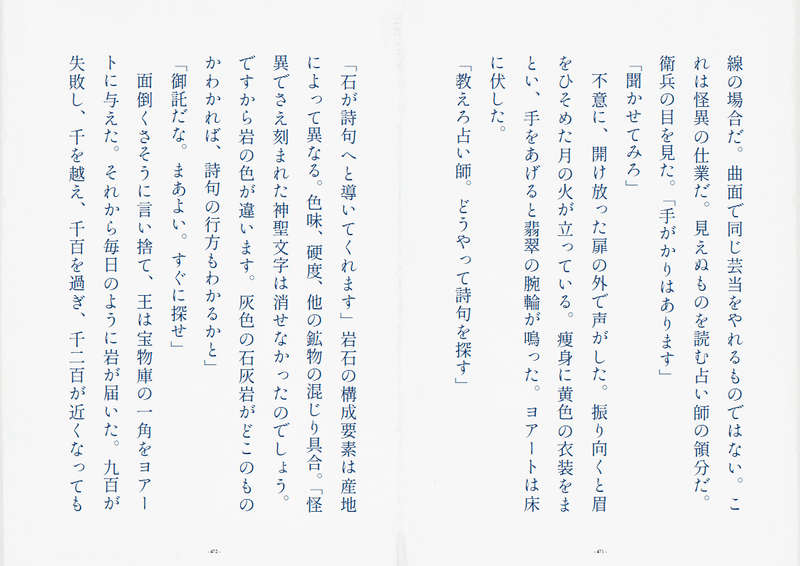 線の場合だ。曲面で同じ芸当をやれるものではない。こ
れは怪異の仕業だ。見えぬものを読む占い師の領分だ。
衛兵の目を見た。「手がかりはあります」
「聞かせてみろ」
不意に、開け放った扉の外で声がした。振り向くと眉
をひそめた月の火が立っている。痩身に黄色の衣装をま
とい、手をあげると翡翠の腕輪が鳴った。ヨアートは床
に伏した。
「教えろ占い師。どうやって詩句を探す」
- 471 -
「石が詩句へと導いてくれます」岩石の構成要素は産地
によって異なる。色味、硬度、他の鉱物の混じり具合。「怪
異でさえ刻まれた神聖文字は消せなかったのでしょう。
ですから岩の色が違います。灰色の石灰岩がどこのもの
かわかれば、詩句の行方もわかるかと」
「御託だな。まあよい。すぐに探せ」
面倒くさそうに言い捨て、王は宝物庫の一角をヨアー
トに与えた。それから毎日のように岩が届いた。九百が
失敗し、千を越え、千百を過ぎ、千二百が近くなっても
- 472 -